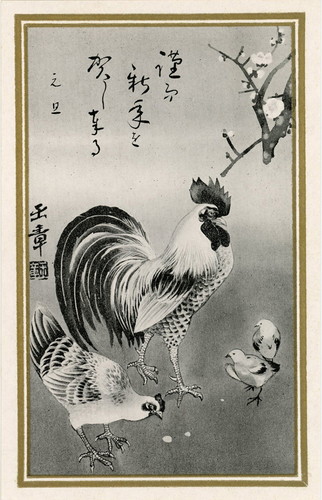 謹而
新年を
賀し奉る
元旦
玉章